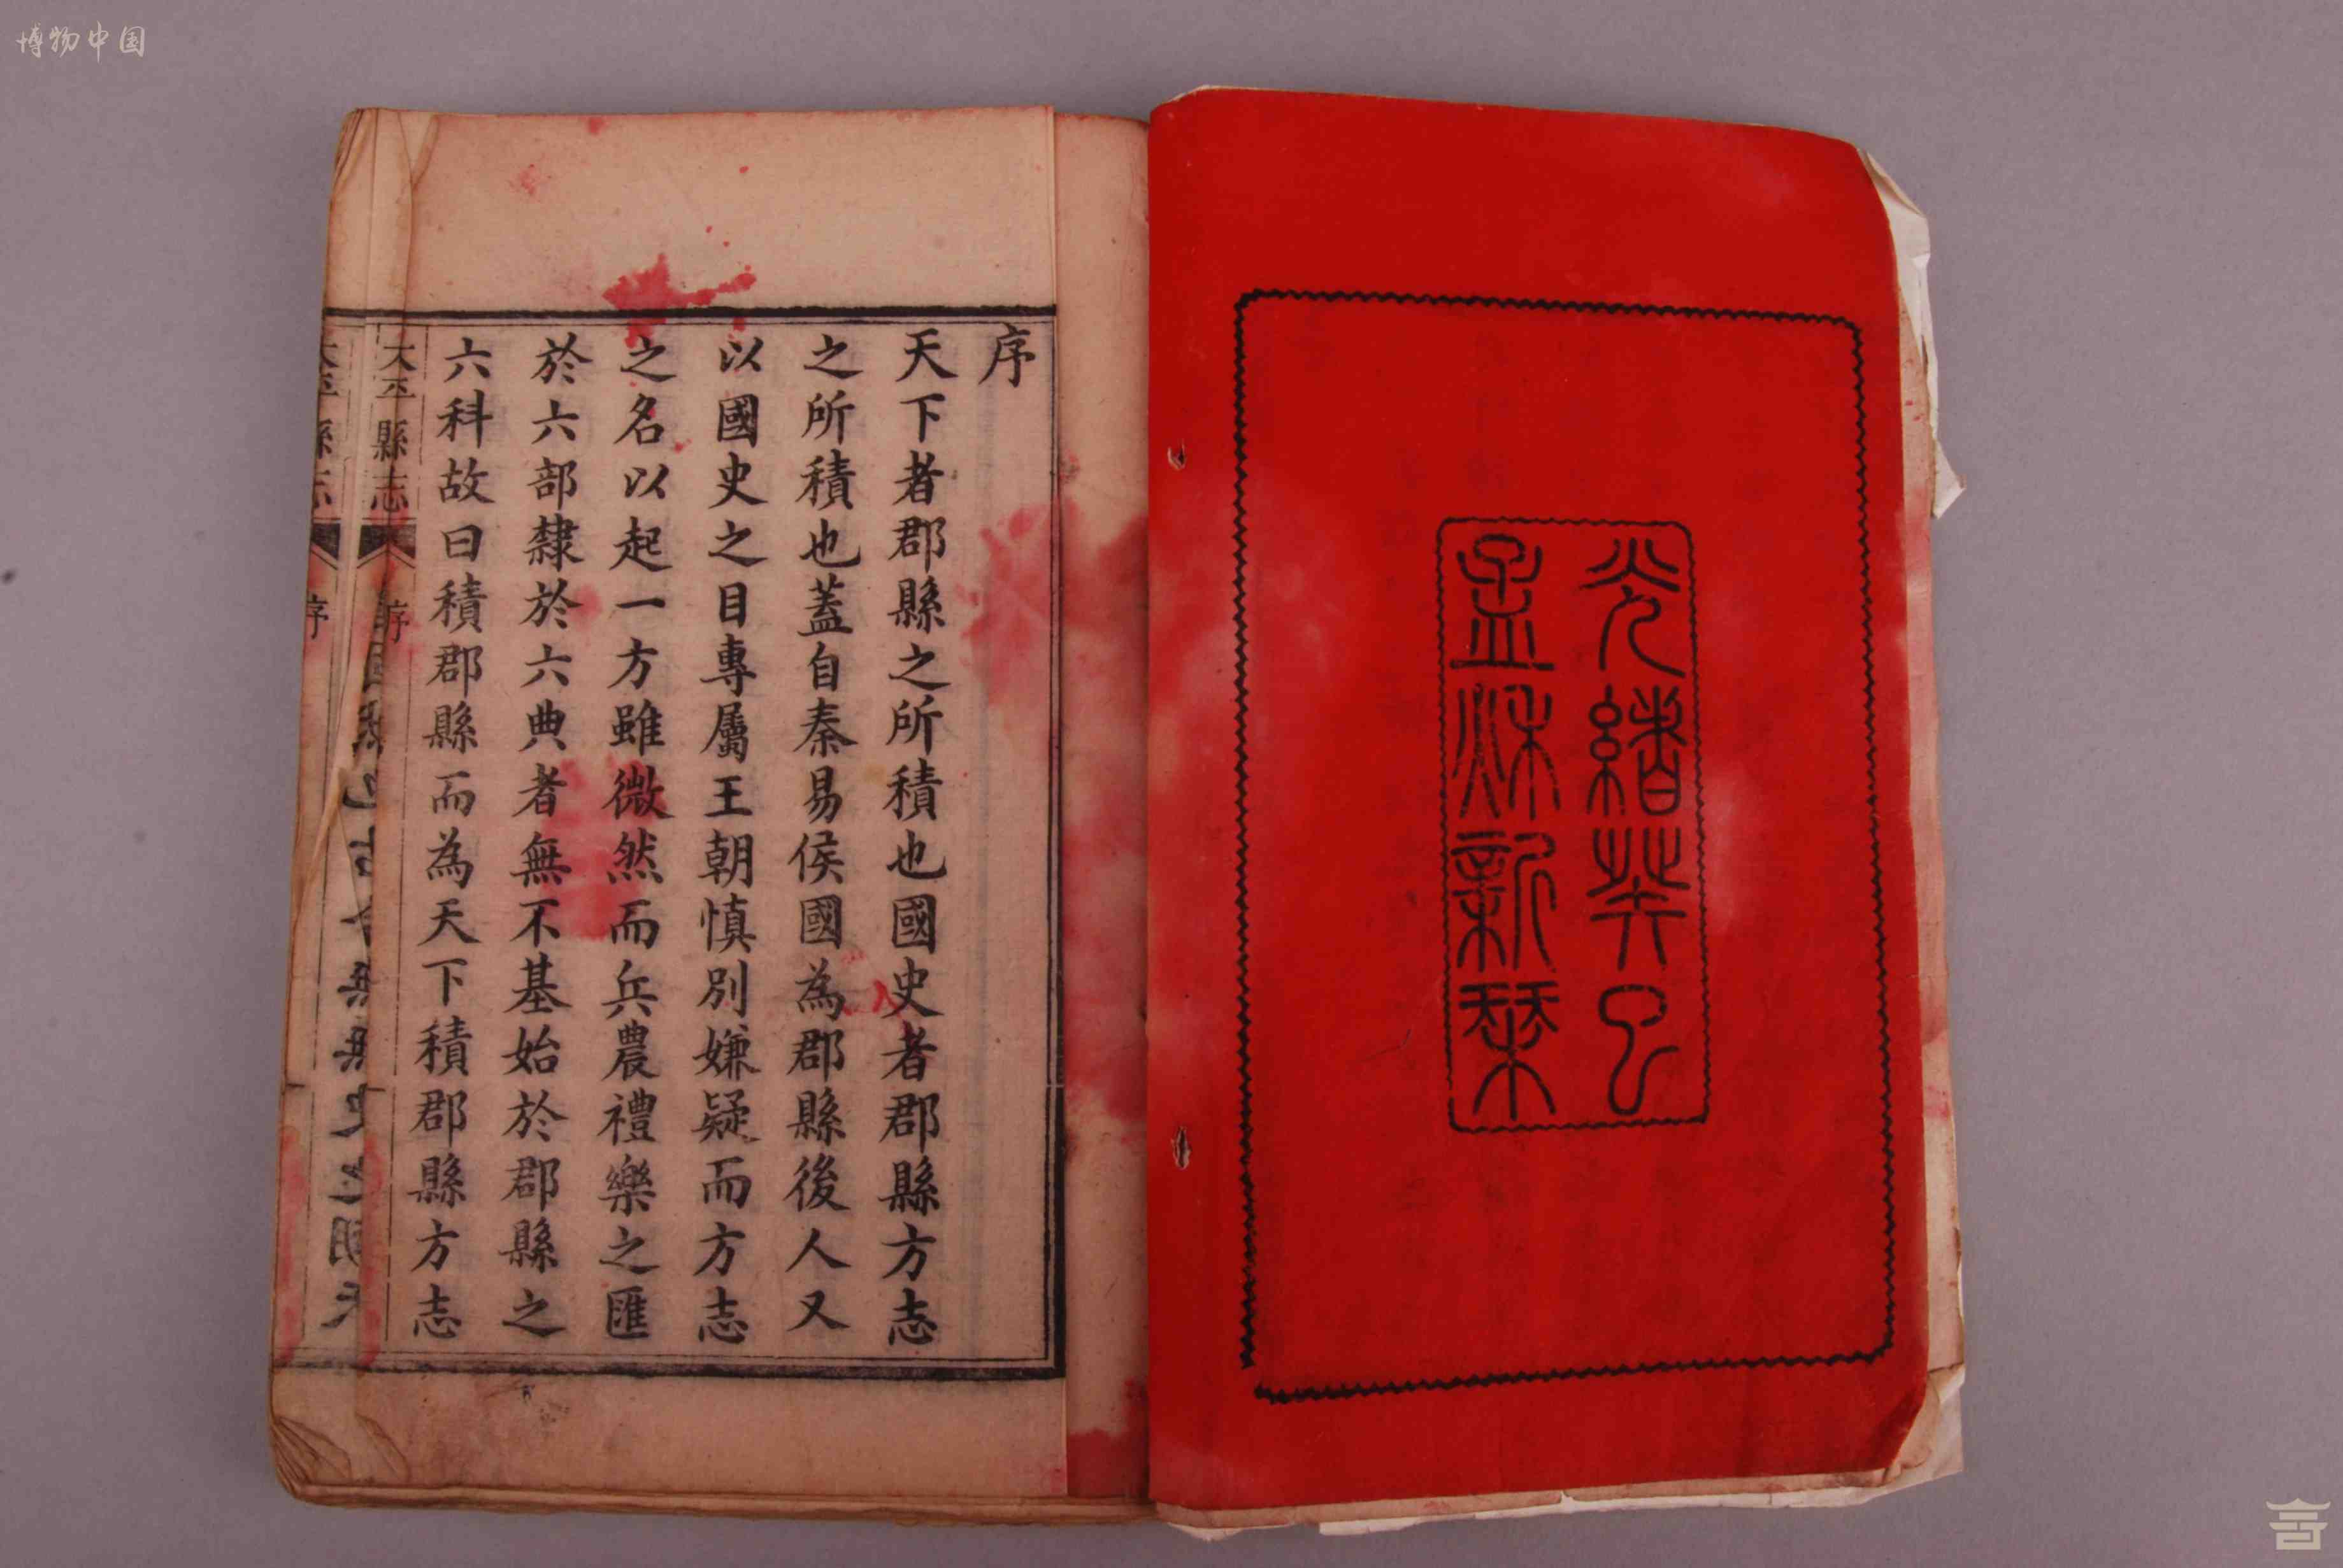 博物中国
光緒癸巳
孟秋新栞
序
天下者郡縣之所積也國史者郡縣方志
之所積也蓋自秦易侯國為郡縣後人又
以國史之目專屬王朝慎別嫌疑而方志
之名以起一方雖微然而兵農禮樂之匯
於六部隸於六典者無不基始於郡縣之
六科故曰積郡縣而為天下積郡縣方志
太平縣志 序